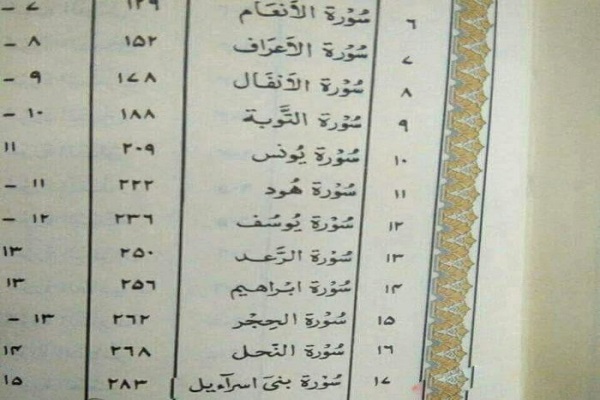 ٦ سُوْرَة الأَنعَام ١٢٩ ٧ –
٧ سُوْرَة الأَعرَاف ١٥٢ ٨ –
٨ سُوْرَة الأَنفَال ١٧٨ ٩ –
٩ سُوْرَة التَّوبَة ١٨٨ ١٠ –
١٠ سُوْرَة يُونس ٢٠٩ ١١
١١ سُوْرَة هُود ٢٢٢ ١١ –
١٢ سُوْرَة يُوسُف ٢٣٦ ١٢ –
١٣ سُوْرَة الرَّعد ٢٥٠ ١٣
١٤ سُوْرَة ابْراهِيم ٢٥٦ ١٣
١٥ سُوْرَة الحِجْر ٢٦٢ ١٣ –
١٦ سُوْرَة النَحل ٢٦٨ ١٤
١٧ سُوْرَة بنى اسرآءيل ٢٨٣ ١٥